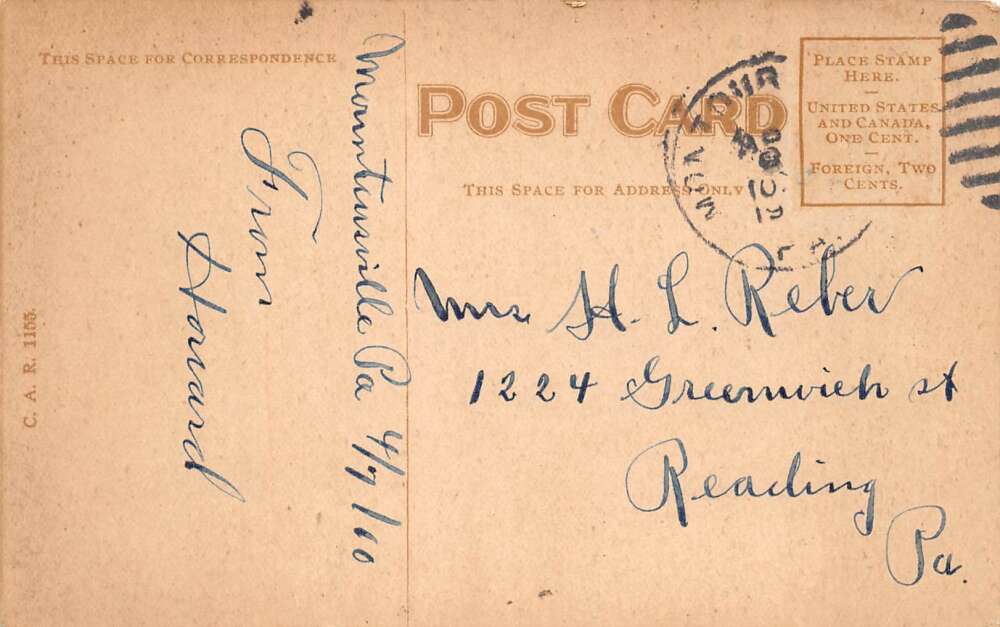 THIS SPACE FOR CORRESPONDENCE
Mountainsville Pa 4/7/10
From
Howard
C. A. R. 1155.
POST CARD
THIS SPACE FOR ADDRESS ONLY
PLACE STAMP
HERE.
UNITED STATES
AND CANADA,
ONE CENT.
FOREIGN, TWO
CENTS.
Mrs H. L. Reber
1224 Greenwich st
Reading
Pa.